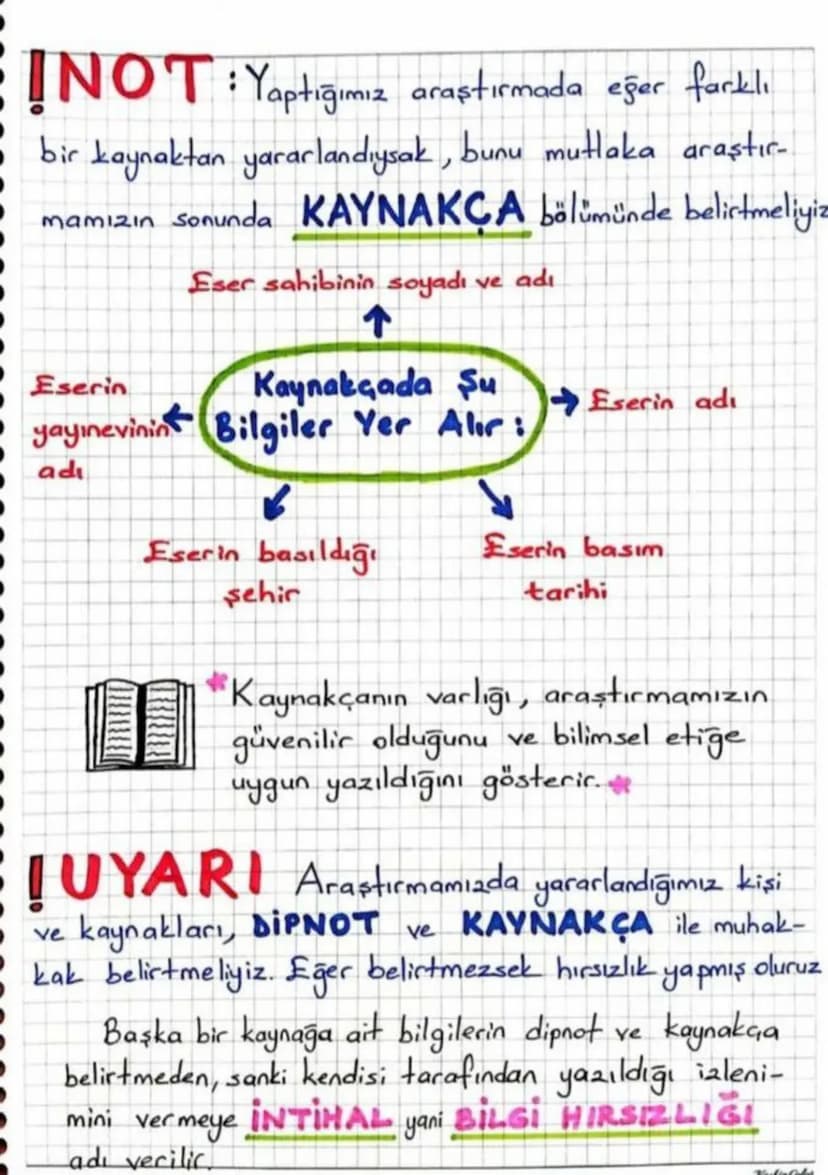 ! NOT : Yaptığımız araştırmada eğer farklı
bir kaynaktan yararlandıysak, bunu mutlaka araştır-
mamızın sonunda KAYNAKÇA bölümünde belirtmeliyiz
Eser sahibinin soyadı ve adı
Kaynakçada Şu
Bilgiler Yer Alır :
Eserin
yayınevinin
adı
Eserin adı
Eserin basıldığı
şehir
Eserin basım
tarihi
*Kaynakçanın varlığı, araştırmamızın
güvenilir olduğunu ve bilimsel etiğe
uygun yazıldığını gösterir.*
! UYARI Araştırmamızda yararlandığımız kişi
ve kaynakları, DİPNOT ve KAYNAKÇA ile muhak-
kak belirtmeliyiz. Eğer belirtmezsek hırsızlık yapmış oluruz
Başka bir kaynağa ait bilgilerin dipnot ve kaynakça
belirtmeden, sanki kendisi tarafından yazıldığı izleni-
mini vermeye İNTİHAL yani BİLGİ HIRSIZLIĞI
adı verilir.